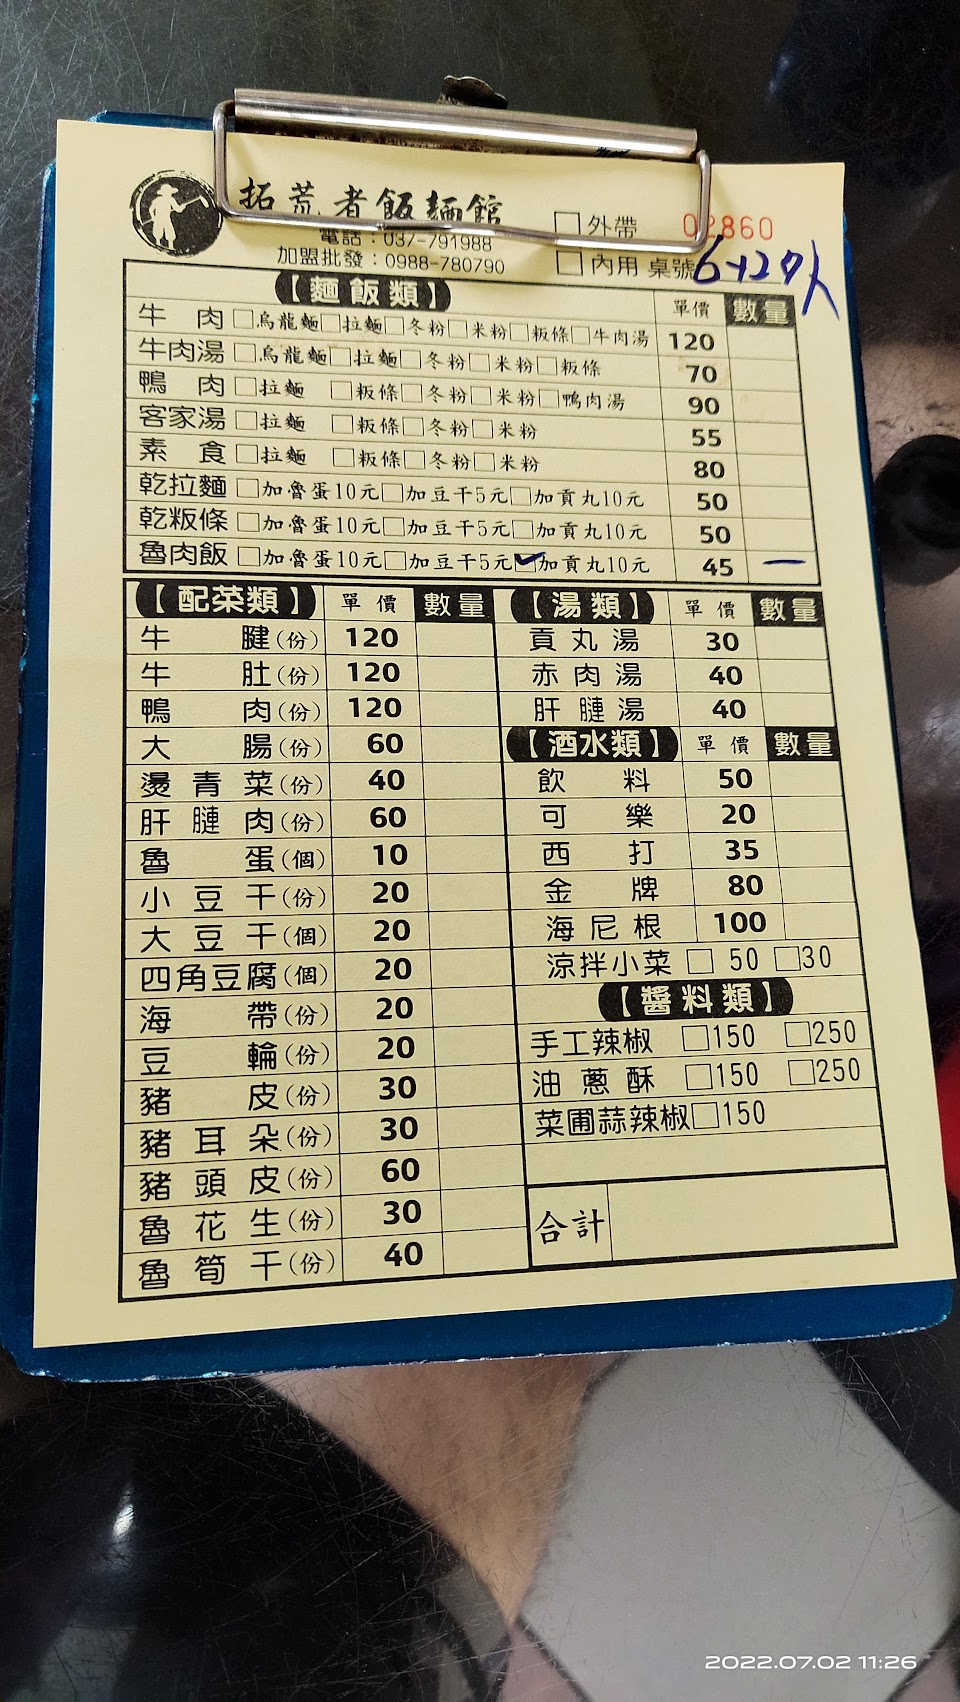 拓荒者飯麵館
電話：037-791988
加盟批發：0988-780790
□外帶 02860
□內用 桌號
【麵飯類】 單價 數量
牛肉 □烏龍麵□拉麵□冬粉□米粉□粄條□牛肉湯 120
牛肉湯 □烏龍麵□拉麵□冬粉□米粉□粄條 70
鴨肉 □拉麵 □粄條□冬粉□米粉□鴨肉湯 90
客家湯 □拉麵 □粄條□冬粉□米粉 55
素食 □拉麵 □粄條□冬粉□米粉 80
乾拉麵 □加魯蛋10元□加豆干5元□加貢丸10元 50
乾粄條 □加魯蛋10元□加豆干5元□加貢丸10元 50
魯肉飯 □加魯蛋10元□加豆干5元☑加貢丸10元 45 一
【配菜類】 單價 數量
牛腱(份) 120
牛肚(份) 120
鴨肉(份) 120
大腸(份) 60
燙青菜(份) 40
肝膧肉(份) 60
魯蛋(個) 10
小豆干(份) 20
大豆干(個) 20
四角豆腐(個) 20
海帶(份) 20
豆輪(份) 20
豬皮(份) 30
豬耳朵(份) 30
豬頭皮(份) 60
魯花生(份) 30
魯筍干(份) 40
【湯類】 單價 數量
貢丸湯 30
赤肉湯 40
肝膧湯 40
【酒水類】 單價 數量
飲料 50
可樂 20
西打 35
金牌 80
海尼根 100
涼拌小菜 □ 50 □30
【醬料類】
手工辣椒 □150 □250
油蔥酥 □150 □250
菜圃蒜辣椒□150
合計
2022.07.02 11:26